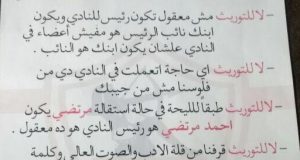 - لا للتوريث مش معقول تكون رئيس للنادي ويكون
ابنك نائب الرئيس هو مفيش أعضاء في
النادي علشان يكون ابنك هو النائب .
- لا للتوريث اي حاجة اتعملت في النادي دي من
فلوسنا مش من جيبك
- لا للتوريث طبقا لليحة في حالة استقالة مرتضي يكون
احمد مرتضي هو رئيس النادي هو ده معقول .
- لا للتوريث قرفنا من قلة الادب والصوت العالي وكلمة